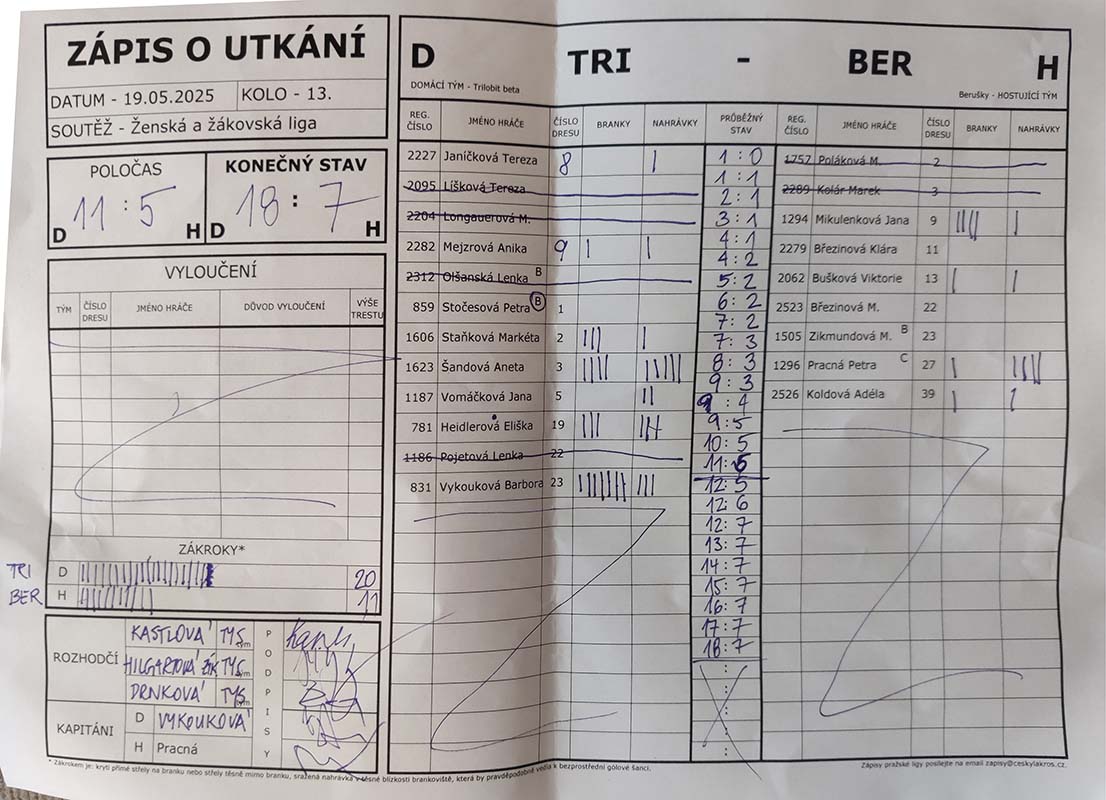 ZÁPIS O UTKÁNÍ
DATUM - 19.05.2025 KOLO - 13.
SOUTĚŽ - Ženská a žákovská liga
POLOČAS KONEČNÝ STAV
D 11 : 5 H D 18 : 7 H
VYLOUČENÍ
TÝM ČÍSLO DRESU JMÉNO HRÁČE DŮVOD VYLOUČENÍ VÝŠE TRESTU
ZÁKROKY*
TRI D 20
BER H 11
ROZHODČÍ
KASTLOVÁ TYS tým
HILGARTOVÁ ZIK TYS tým
DRNKOVÁ TYS tým
KAPITÁNI
D VYKOUKOVÁ
H Pracná
PODPISY
D TRI - BER H
DOMÁCÍ TÝM - Trilobit beta Berušky - HOSTUJÍCÍ TÝM
REG. ČÍSLO JMÉNO HRÁČE ČÍSLO DRESU BRANKY NAHRÁVKY PRŮBĚŽNÝ STAV REG. ČÍSLO JMÉNO HRÁČE ČÍSLO DRESU BRANKY NAHRÁVKY
2227 Janíčková Tereza 8 |
2095 Líšková Tereza
2204 Longauerová M.
2282 Mejzrová Anika 9 | |
2312 Olšanská Lenka B
859 Stočesová Petra B 1
1606 Staňková Markéta 2 ||| |
1623 Šandová Aneta 3
1187 Vomáčková Jana 5 ||
781 Heidlerová Eliška 19 |||
1186 Pojetová Lenka 22
831 Vykouková Barbora 23 |||
1 : 0
1 : 1
2 : 1
3 : 1
4 : 1
4 : 2
5 : 2
6 : 2
7 : 2
7 : 3
8 : 3
9 : 3
9 : 4
9 : 5
10 : 5
11 : 5
12 : 5
12 : 6
12 : 7
13 : 7
14 : 7
15 : 7
16 : 7
17 : 7
18 : 7
1757 Poláková M. 2
2289 Kolár Marek 3
1294 Mikulenková Jana 9 |||| |
2279 Březinová Klára 11
2062 Bušková Viktorie 13 | |
2523 Březinová M. 22
1505 Zikmundová M. B 23
1296 Pracná Petra C 27 |
2526 Koldová Adéla 39 | |
* Zákrokem je: krytí přímé střely na branku nebo střely těsně mimo branku, sražená nahrávka v těsné blízkosti brankoviště, která by pravděpodobně vedla k bezprostřední gólové šanci.
Zápisy pražské ligy posílejte na email zapisy@ceskylakros.cz.